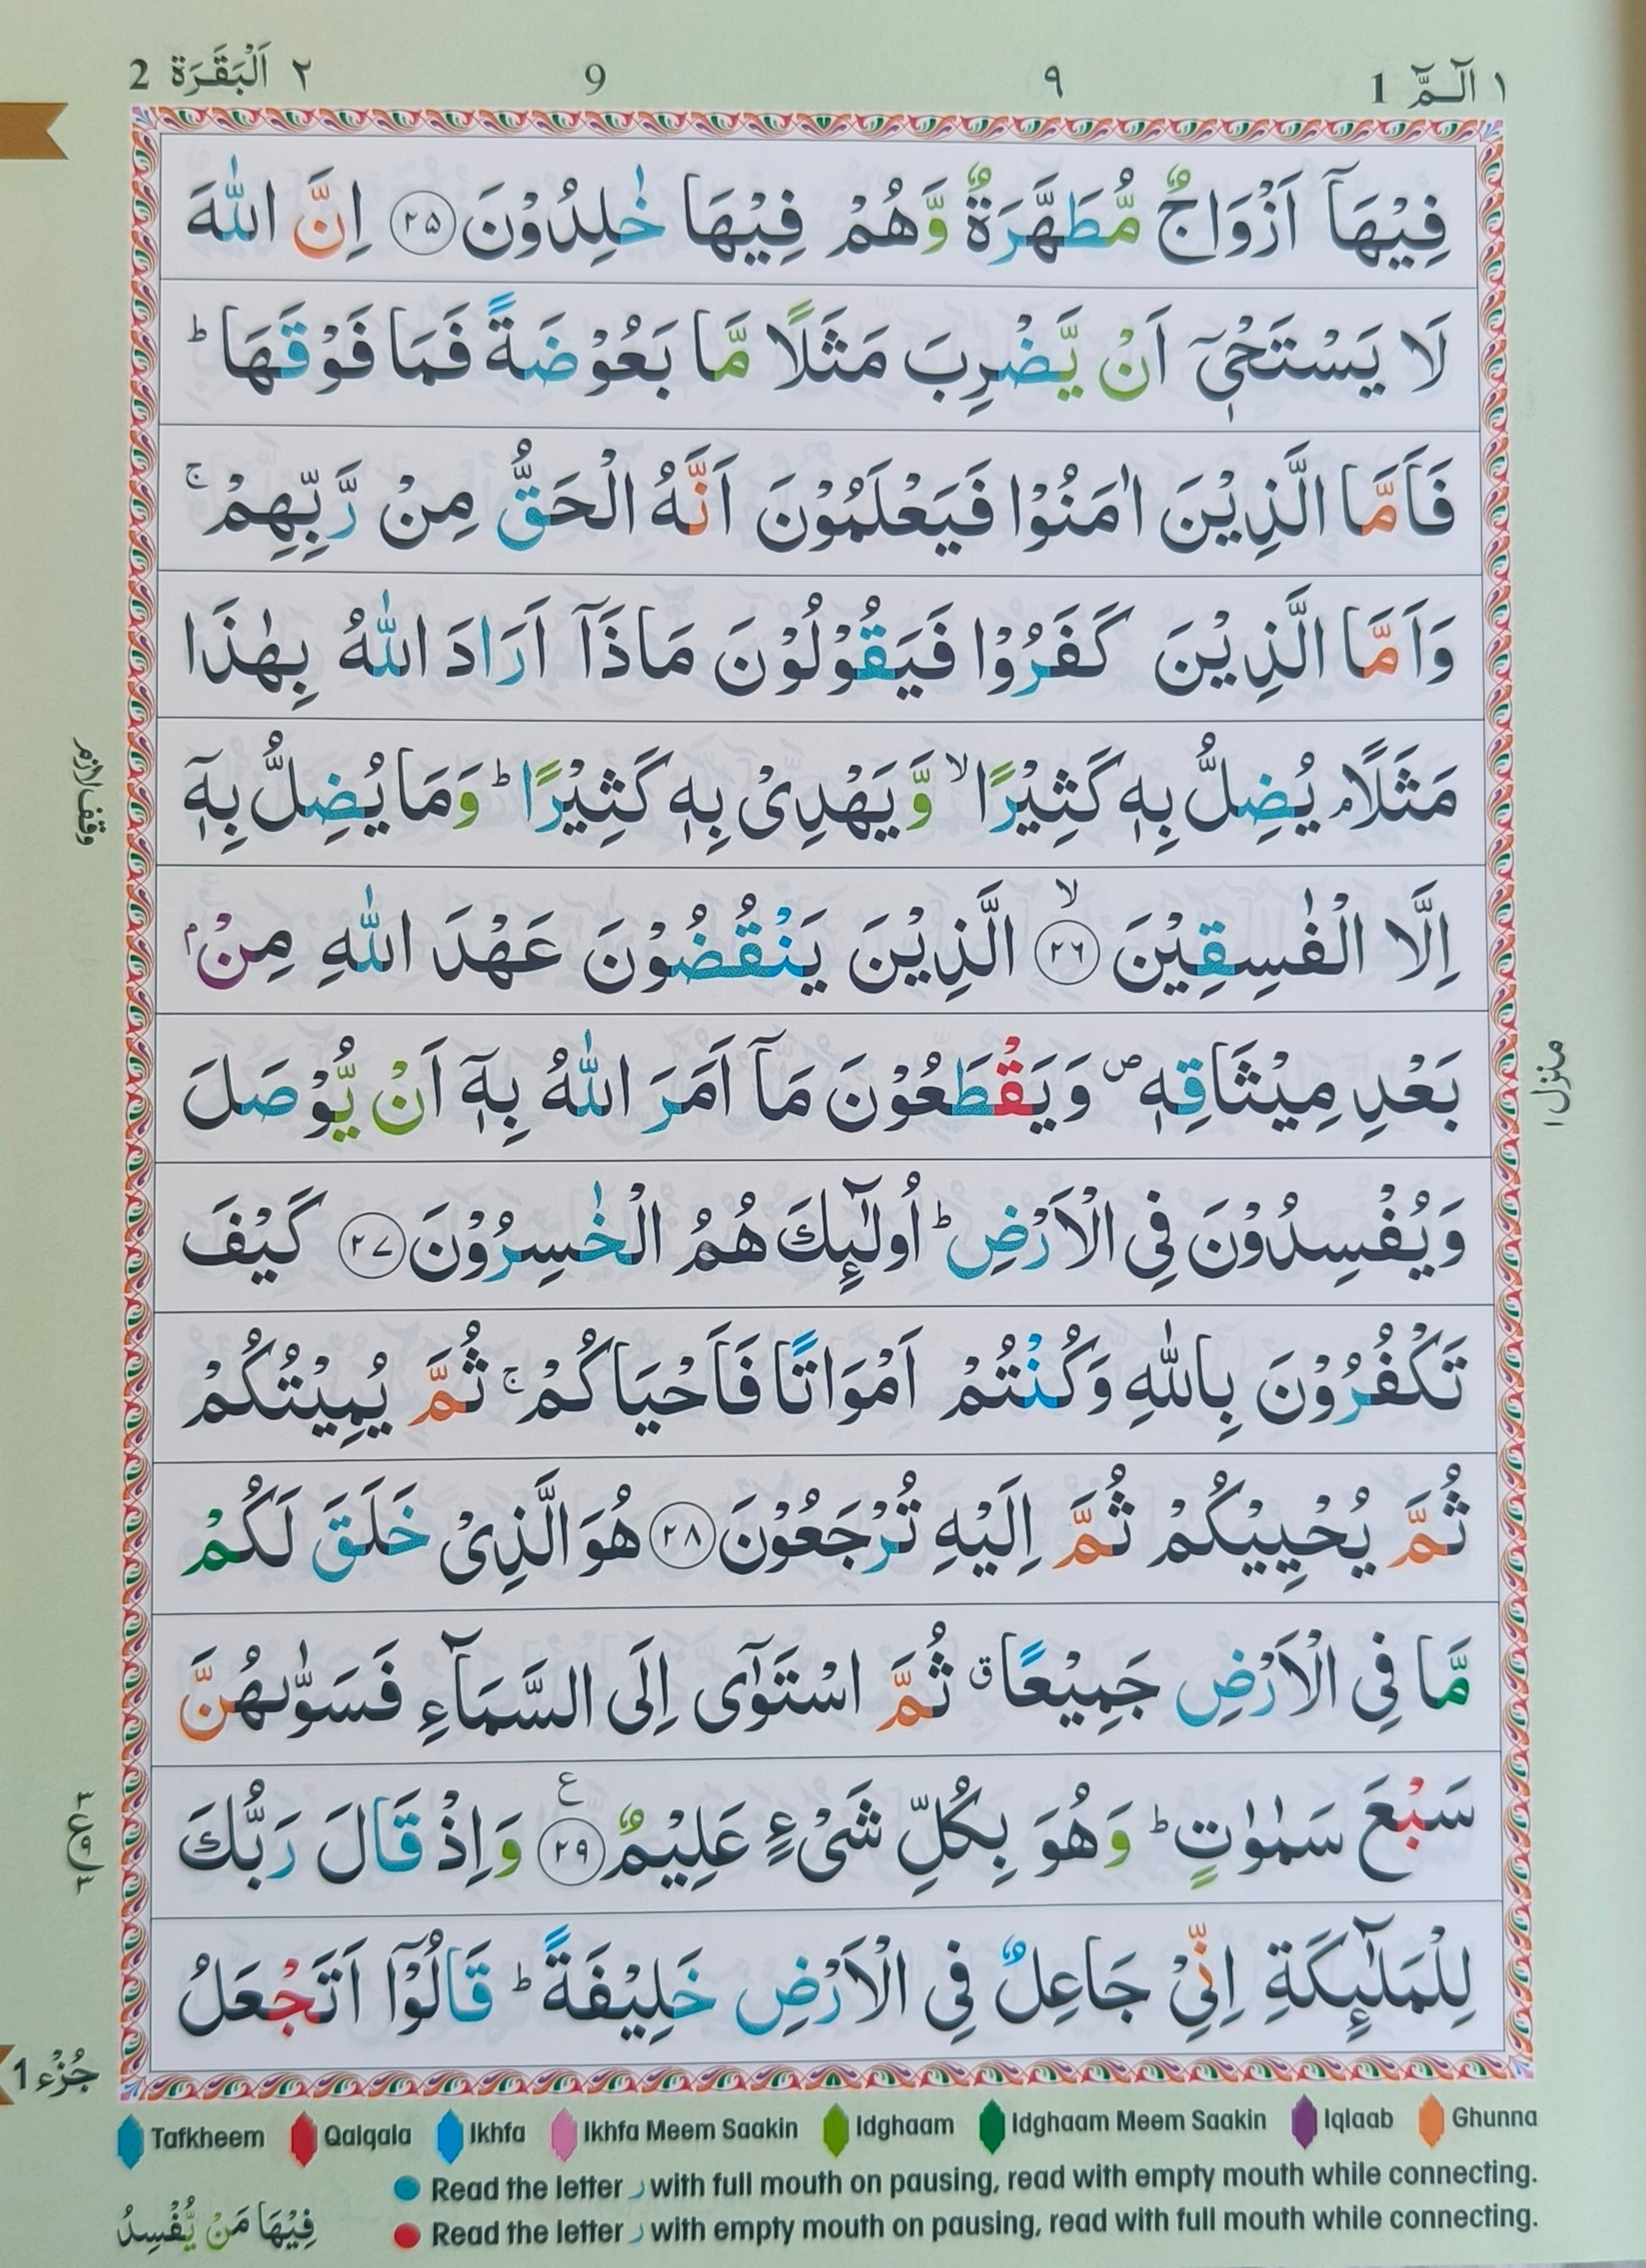 ١ الٓمّٓ 1 ٩ 9 ٢ اَلْبَقَرَة 2
فِيْهَاۤ اَزْوَاجٌ مُّطَهَّرَةٌ وَّهُمْ فِيْهَا خٰلِدُوْنَ ﴿٢٥﴾ اِنَّ اللّٰهَ
لَا يَسْتَحْيٖۤ اَنْ يَّضْرِبَ مَثَلًا مَّا بَعُوْضَةً فَمَا فَوْقَهَا ؕ
فَاَمَّا الَّذِيْنَ اٰمَنُوْا فَيَعْلَمُوْنَ اَنَّهُ الْحَقُّ مِنْ رَّبِّهِمْ ۚ
وَاَمَّا الَّذِيْنَ كَفَرُوْا فَيَقُوْلُوْنَ مَاذَاۤ اَرَادَ اللّٰهُ بِهٰذَا
مَثَلًا ۘ يُضِلُّ بِهٖ كَثِيْرًا ۙ وَّيَهْدِىْ بِهٖ كَثِيْرًا ؕ وَمَا يُضِلُّ بِهٖۤ
اِلَّا الْفٰسِقِيْنَ ﴿٢٦﴾ ۙ الَّذِيْنَ يَنْقُضُوْنَ عَهْدَ اللّٰهِ مِنْۢ
بَعْدِ مِيْثَاقِهٖ ص وَيَقْطَعُوْنَ مَاۤ اَمَرَ اللّٰهُ بِهٖۤ اَنْ يُّوْصَلَ
وَيُفْسِدُوْنَ فِى الْاَرْضِ ؕ اُولٰٓئِكَ هُمُ الْخٰسِرُوْنَ ﴿٢٧﴾ كَيْفَ
تَكْفُرُوْنَ بِاللّٰهِ وَكُنْتُمْ اَمْوَاتًا فَاَحْيَاكُمْ ۚ ثُمَّ يُمِيْتُكُمْ
ثُمَّ يُحْيِيْكُمْ ثُمَّ اِلَيْهِ تُرْجَعُوْنَ ﴿٢٨﴾ هُوَ الَّذِىْ خَلَقَ لَكُمْ
مَّا فِى الْاَرْضِ جَمِيْعًا ق ثُمَّ اسْتَوٰۤى اِلَى السَّمَآءِ فَسَوّٰىهُنَّ
سَبْعَ سَمٰوٰتٍ ؕ وَهُوَ بِكُلِّ شَىْءٍ عَلِيْمٌ ﴿٢٩﴾ ع وَاِذْ قَالَ رَبُّكَ
لِلْمَلٰٓئِكَةِ اِنِّىْ جَاعِلٌ فِى الْاَرْضِ خَلِيْفَةً ؕ قَالُوْۤا اَتَجْعَلُ
وقف لازم
منزل ١
جُزْء 1
Tafkheem Qalqala Ikhfa Ikhfa Meem Saakin Idghaam Idghaam Meem Saakin Iqlaab Ghunna
Read the letter ر with full mouth on pausing, read with empty mouth while connecting.
Read the letter ر with empty mouth on pausing, read with full mouth while connecting.
فِيْهَا مَنْ يُّفْسِدُ